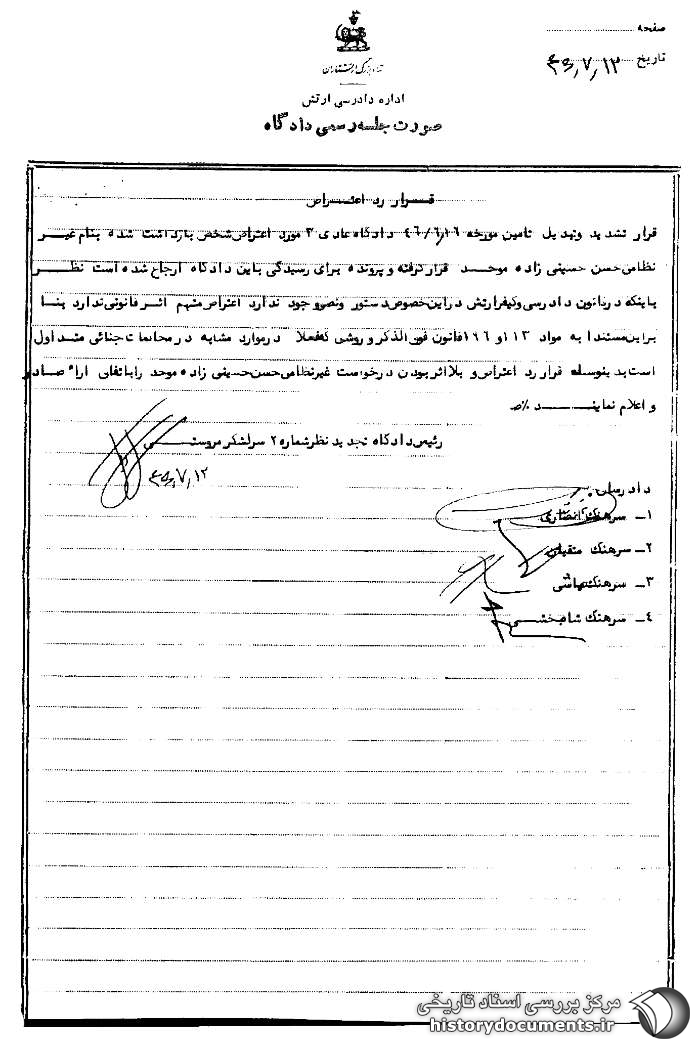 صفحه
تاریخ ۴۶٫۷٫۱۲
ستاد بزرگ ارتشتاران
اداره دادرسی ارتش
صورت جلسه رسمی دادگاه
قرار رد اعتراض
قرار تشدید وتبدیل تامین مورخه ۴۶/۶/۱۶ دادگاه عادی ۳ مورد اعتراض شخص بازداشت شده بنام غیر
نظامی حسن حسینی زاده موحد قرار گرفته و پرونده برای رسیدگی باین دادگاه ارجاع شده است نظر
باینکه درقانون دادرسی وکیفرارتش دراین خصوص دستور ونصی وجود ندارد اعتراض متهم اثر قانونی ندارد بنا
براین مستندا به مواد ۱۱۳ و ۱۹۶ قانون فوق الذکر و روشی که فعلا درموارد مشابه درمحاکمات جنائی متداول
است بدینوسیله قرار رد اعتراض و بلااثربودن درخواست غیرنظامی حسن حسینی زاده موحد را باتفاق اراء صادر
و اعلام نماینــــــد
رئیس دادگاه تجدید نظر شماره ۲ سرلشکر مروستــــی
۴۶٫۷٫۱۲
دادرسان
۱ـ سرهنگ انصاری
۲ـ سرهنگ متقیان
۳ـ سرهنگ
۴ـ سرهنگ شاه بخشــی
مرکز بررسی اسناد تاریخی
historydocuments.ir